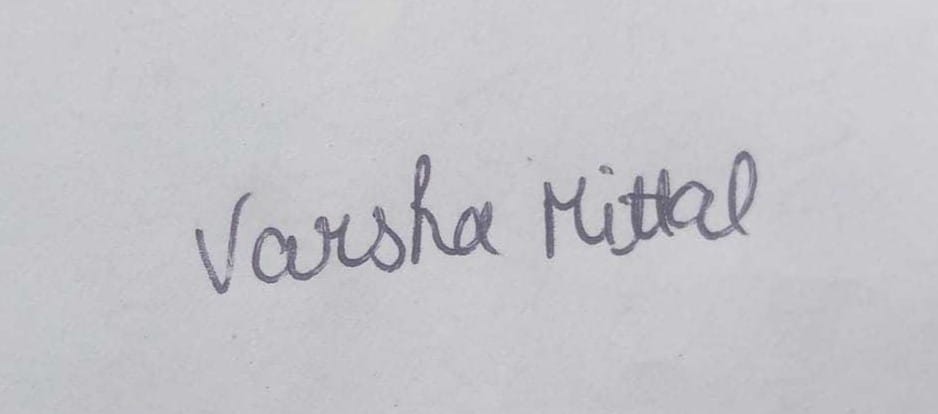 Varsha Mittal